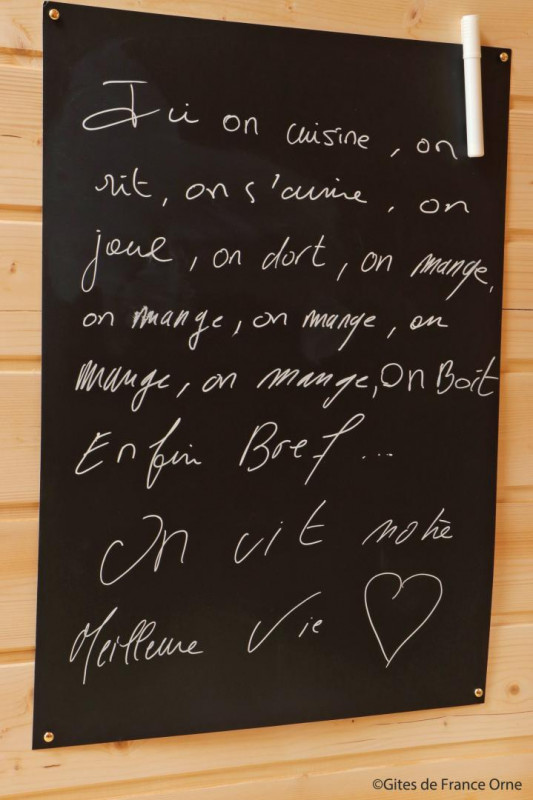 Ici on cuisine, on
rit, on s'aime, on
joue, on dort, on mange,
on mange, on mange, on
mange, on mange, On Boit
Enfin Bref...
On vit notre
Meilleure Vie ♡
©Gites de France Orne